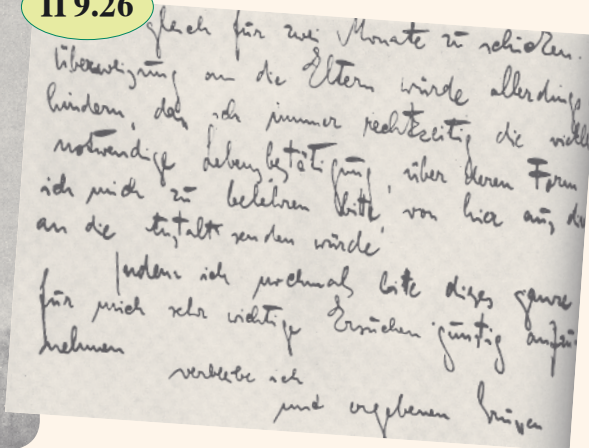 II 9.26
gleich für zwei Monate zu schicken.
Überweisung an die Eltern würde allerdings
hindern, daß ich immer rechtzeitig die
notwendige Lebensbestätigung, über deren Form
ich mich zu belehren bitte, von hier aus
an die Anstalt senden würde
Indem ich nochmals bitte dieses ganze
für mich sehr wichtige Ersuchen günstig
nehmen
verbleibe ich
und ergebenen Grüssen